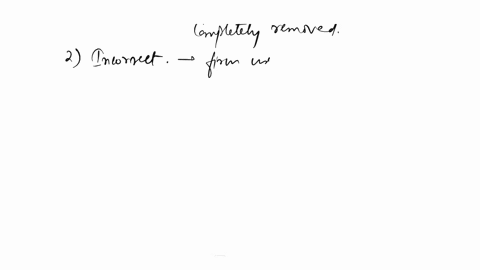 completely removed.
2) Incorrect. → firm